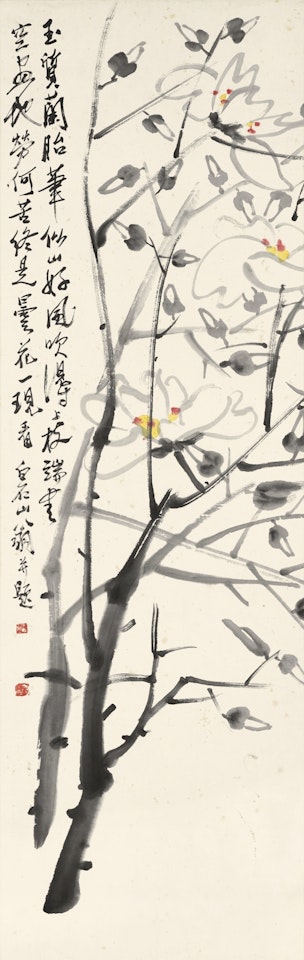 玉質蘭胎筆似山好風吹滿上枝端書
空畫地勞何苦終是曇花一現看 白石山翁并題